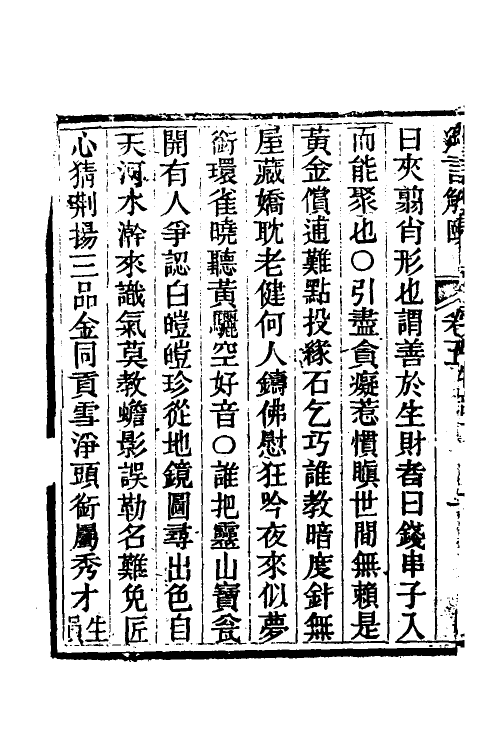 曰夾翦肖形也謂善於生財者曰錢串子入
而能聚也○引盡貪癡惹慣瞋世間無賴是
黃金償逋難點投緣石乞巧誰教暗度針無
屋藏嬌耽老健何人鑄佛慰狂吟夜來似夢
銜環雀曉聽黃驪空好音○誰把靈山寶瓮
開有人爭認白皚皚珍從地鏡圖尋出色自
天河水澣來識氣莫教蟾影誤勒名難免匠
心猜荆揚三品金同貢雪淨頭銜屬秀才生員